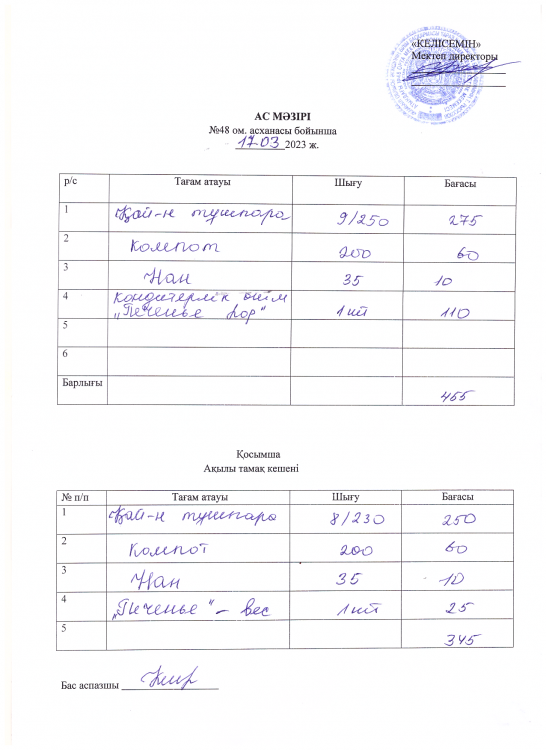 «КЕЛІСЕМІН»
Мектеп директоры
АС МӘЗІРІ
№48 ом. асханасы бойынша
17.03 2023 ж.
р/с Тағам атауы Шығу Бағасы
1 Қай-н тұшпара 9/250 275
2 Компот 200 60
3 Нан 35 10
4 Кондитерлік өнім
„Печенье 1 шт 110
5
6
Барлығы 455
Қосымша
Ақылы тамақ кешені
№ п/п Тағам атауы Шығу Бағасы
1 Қай-н тұшпара 8/230 250
2 Компот 200 60
3 Нан 35 10
4 „Печенье" – вес 1 шт 25
5 345
Бас аспазшы